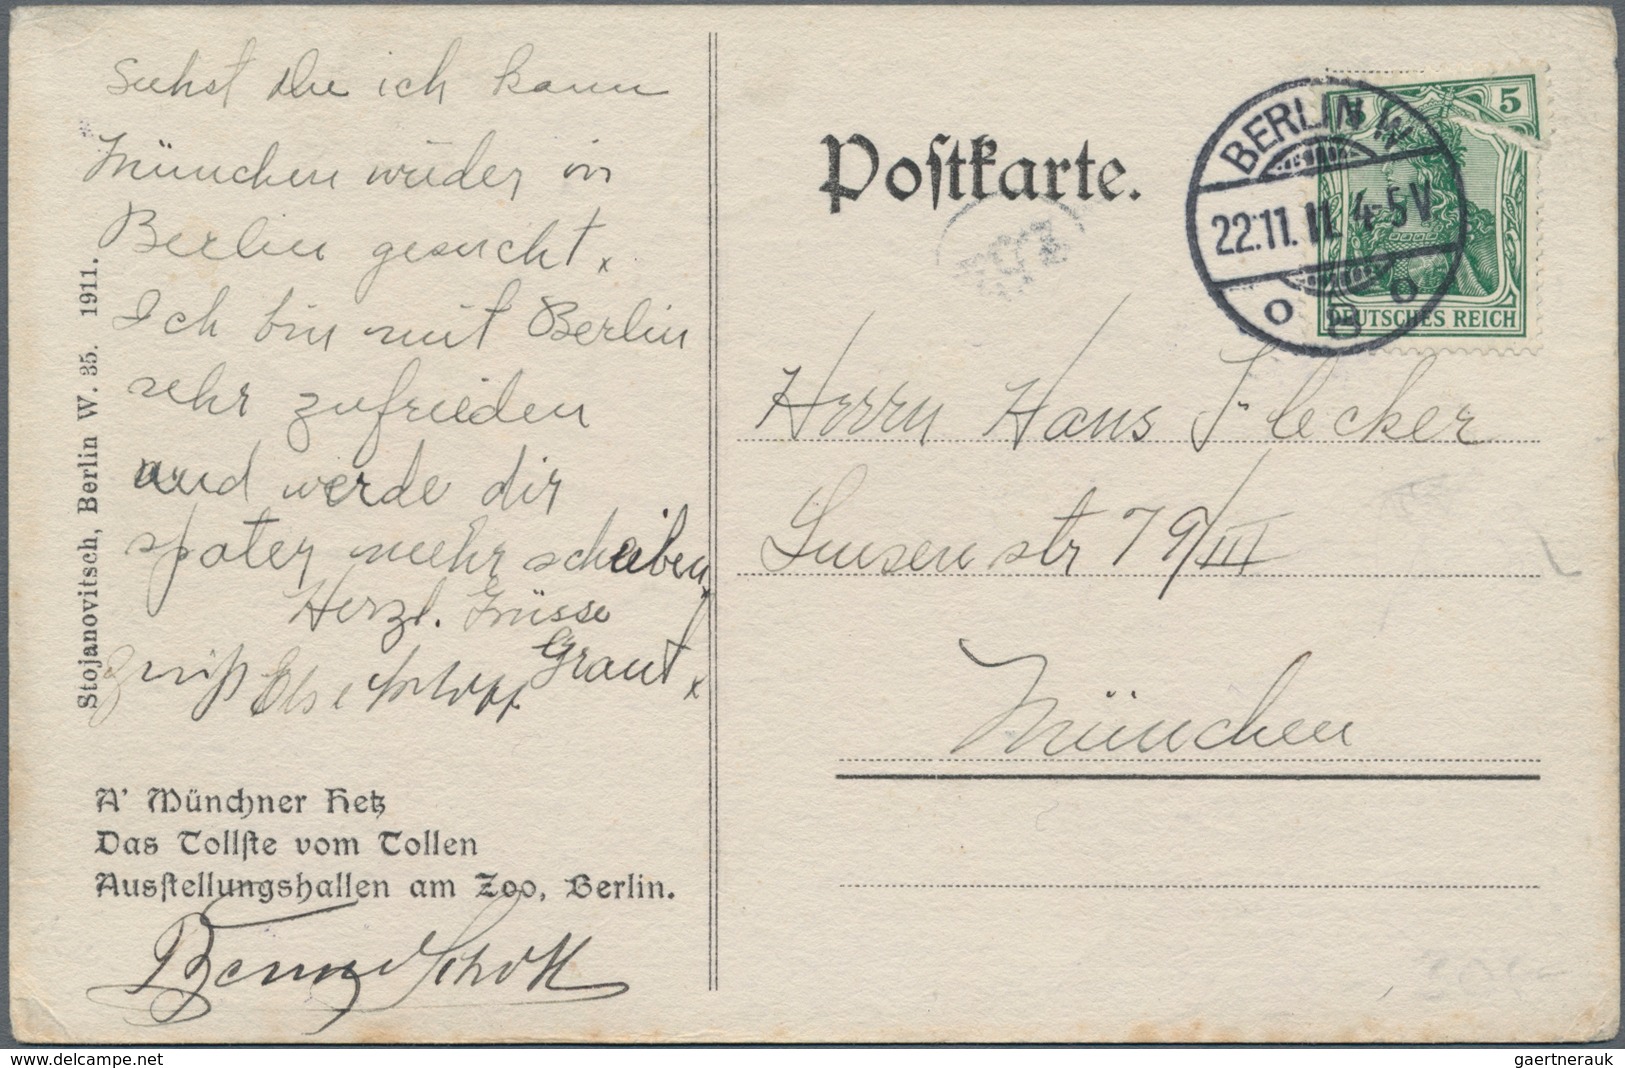 Siehst du ich kann
München wieder in
Berlin gesucht.
Ich bin mit Berlin
sehr zufrieden
und werde dir
später mehr schreiben
Herzl. Grüsse
Graut
Else
Stojanovitsch, Berlin W. 35. 1911.
A' Münchner Hetz
Das Tollſte vom Tollen
Ausſtellungshallen am Zoo, Berlin.
Poſtkarte.
BERLIN W
22.11.11. 4-5V
5
DEUTSCHES REICH
Herrn Hans Flecker
Luisen str 79/III
München
gaertnerauk